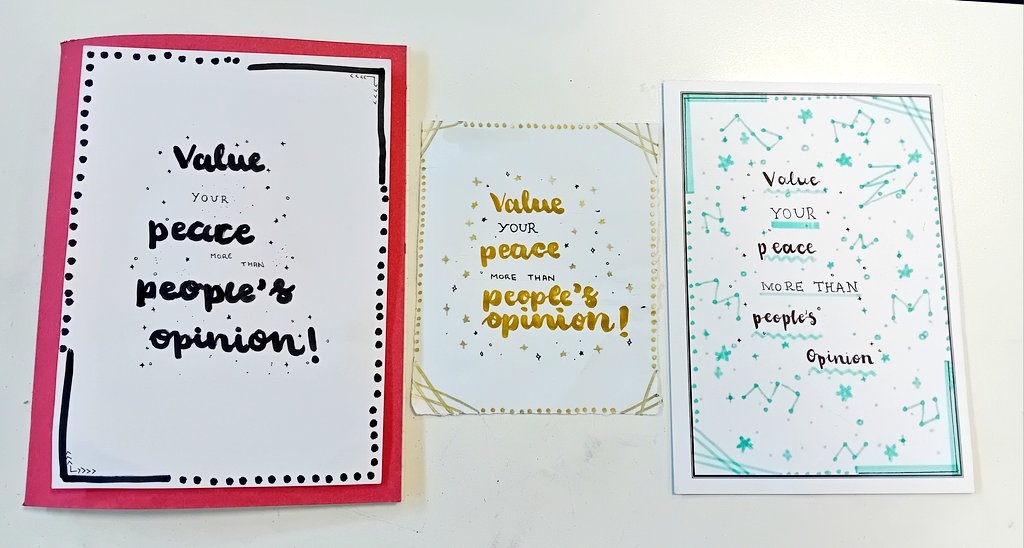 Value
YOUR
peace
MORE
THAN
people's
opinion!
Value
YOUR
peace
MORE THAN
people's
opinion!
Value
YOUR
peace
MORE THAN
people's
Opinion